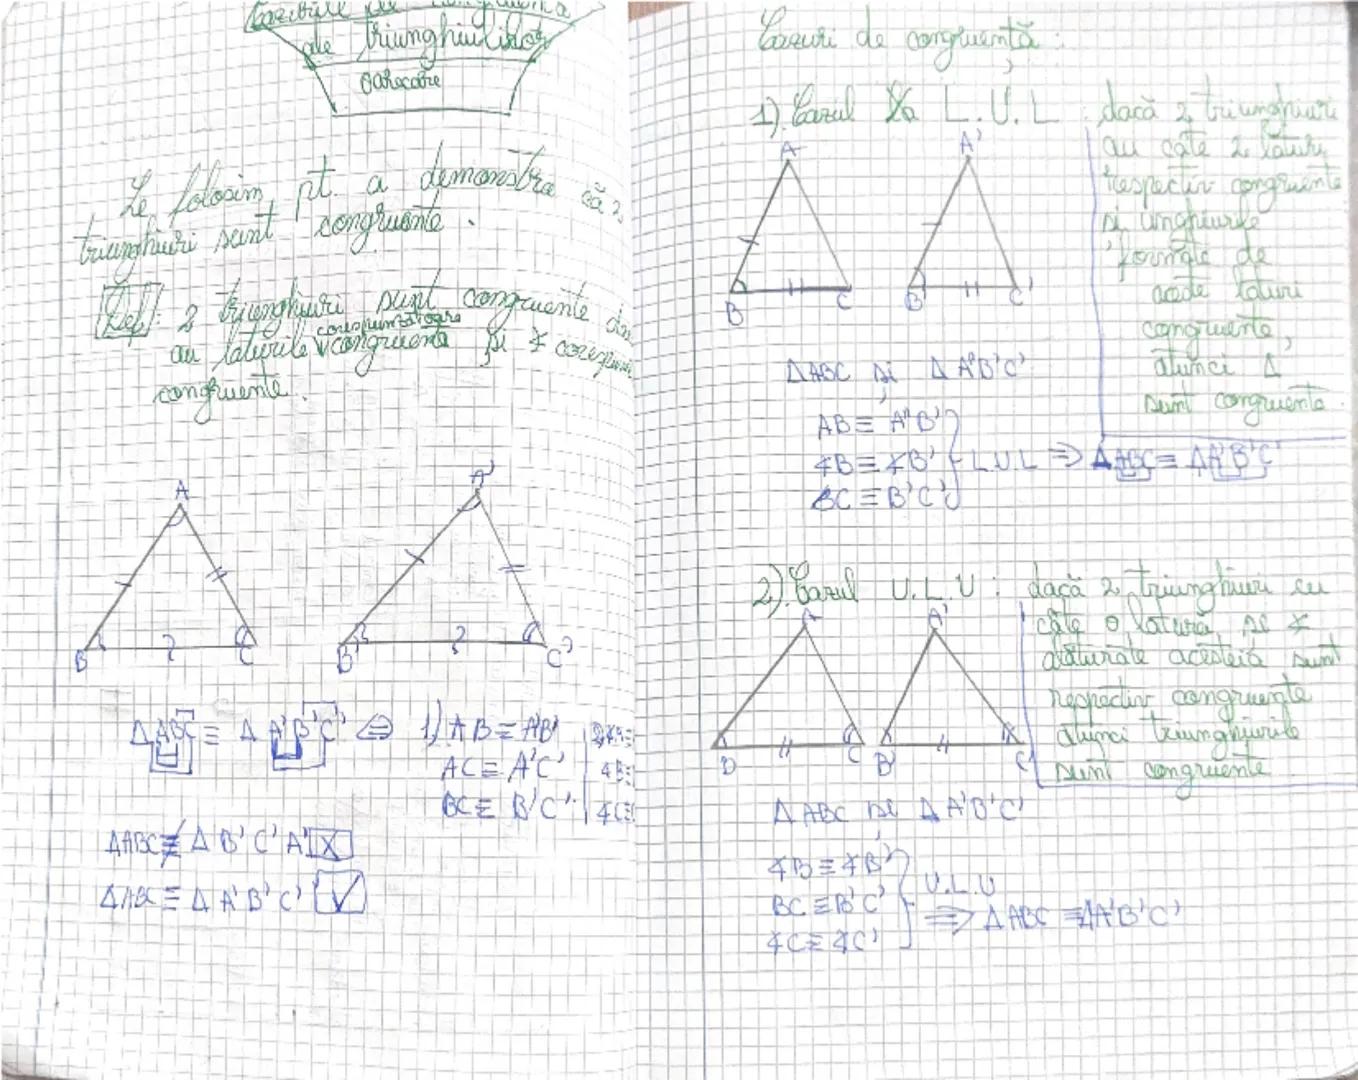 Cazurile de congruență
ale triunghiurilor
oarecare
Le folosim pt. a demonstra că 2
triunghiuri sunt congruente.
Def: 2 triunghiuri sunt congruente
corespunzătoare
au laturile congruente și ∢
congruente.
A
A'
B
C
B'
C'
Δ ABC ≡ Δ A'B'C' ⇔ 1) AB ≡ A'B'
AC ≡ A'C'
BC ≡ B'C'
ΔABC ≢ Δ B'C'A' X
ΔABC ≡ Δ A'B'C' ✓
Cazuri de congruență:
1) Cazul L.U.L : dacă 2 triunghiuri
au câte 2 laturi
respectiv congruente
și unghiurile
formate de
aceste laturi
congruente,
atunci Δ
sunt congruente.
A
A'
B
C
B'
C'
ΔABC și Δ A'B'C'
AB ≡ A'B'
∢B ≡ ∢B'
BC ≡ B'C'
L.U.L ⇒ ΔABC ≡ ΔA'B'C'
2) Cazul U.L.U : dacă 2 triunghiuri cu
câte o latură și ∢
alăturate acesteia sunt
respectiv congruente
atunci triunghiurile
sunt congruente
A
A'
B
C
B'
C'
Δ ABC și Δ A'B'C'
∢B ≡ ∢B'
BC ≡ B'C'
∢C ≡ ∢C'
U.L.U
⇒ Δ ABC ≡ ΔA'B'C'